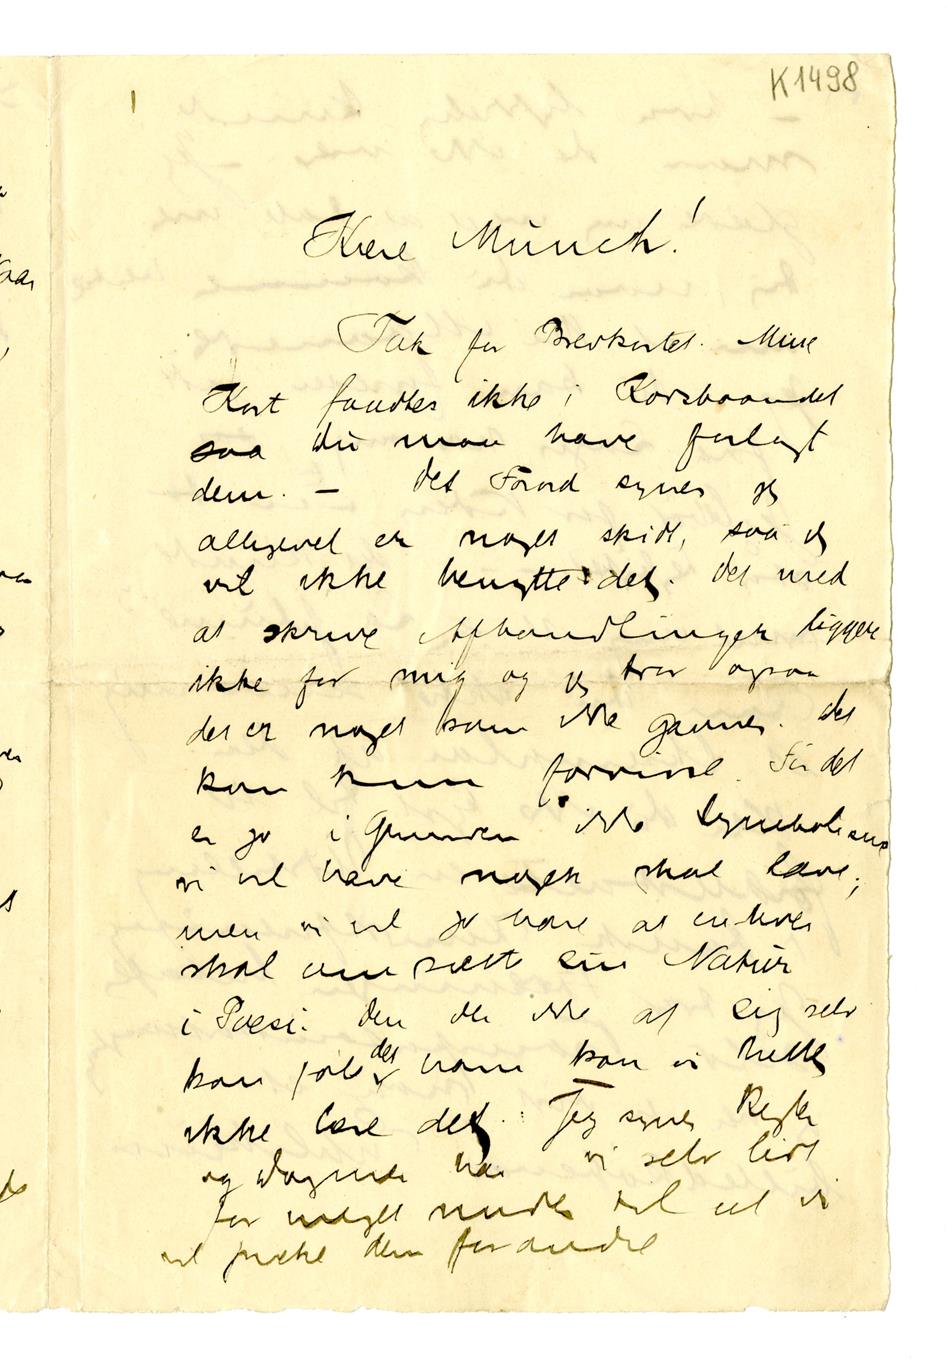 K1498
Kære Münch!
Tak for Brevkortet. Mine
Kort fandtes ikke i Korsbaandet
saa du maa have forlagt
dem. – Det Forord synes jeg
alligevel er noget skidt, saa jeg
vil ikke benytte det. Det med
at skrive Afhandlinger ligger
ikke for mig og jeg tror ogsaa
det er noget som ikke gavner. Det
kan kun forvirre. For det
er jo i Grunden ikke Symbolisme
vi vil have nogen skal lære;
men vi vil jo have at enhver
skal omsætte sin Natur
i Poesi. Den der ikke af sig selv
kan føle det ham kan vi heller
ikke lære det. Jeg synes Regler
og Dogmer har vi selv lidt
for meget under til at vi
vil prække dem for andre